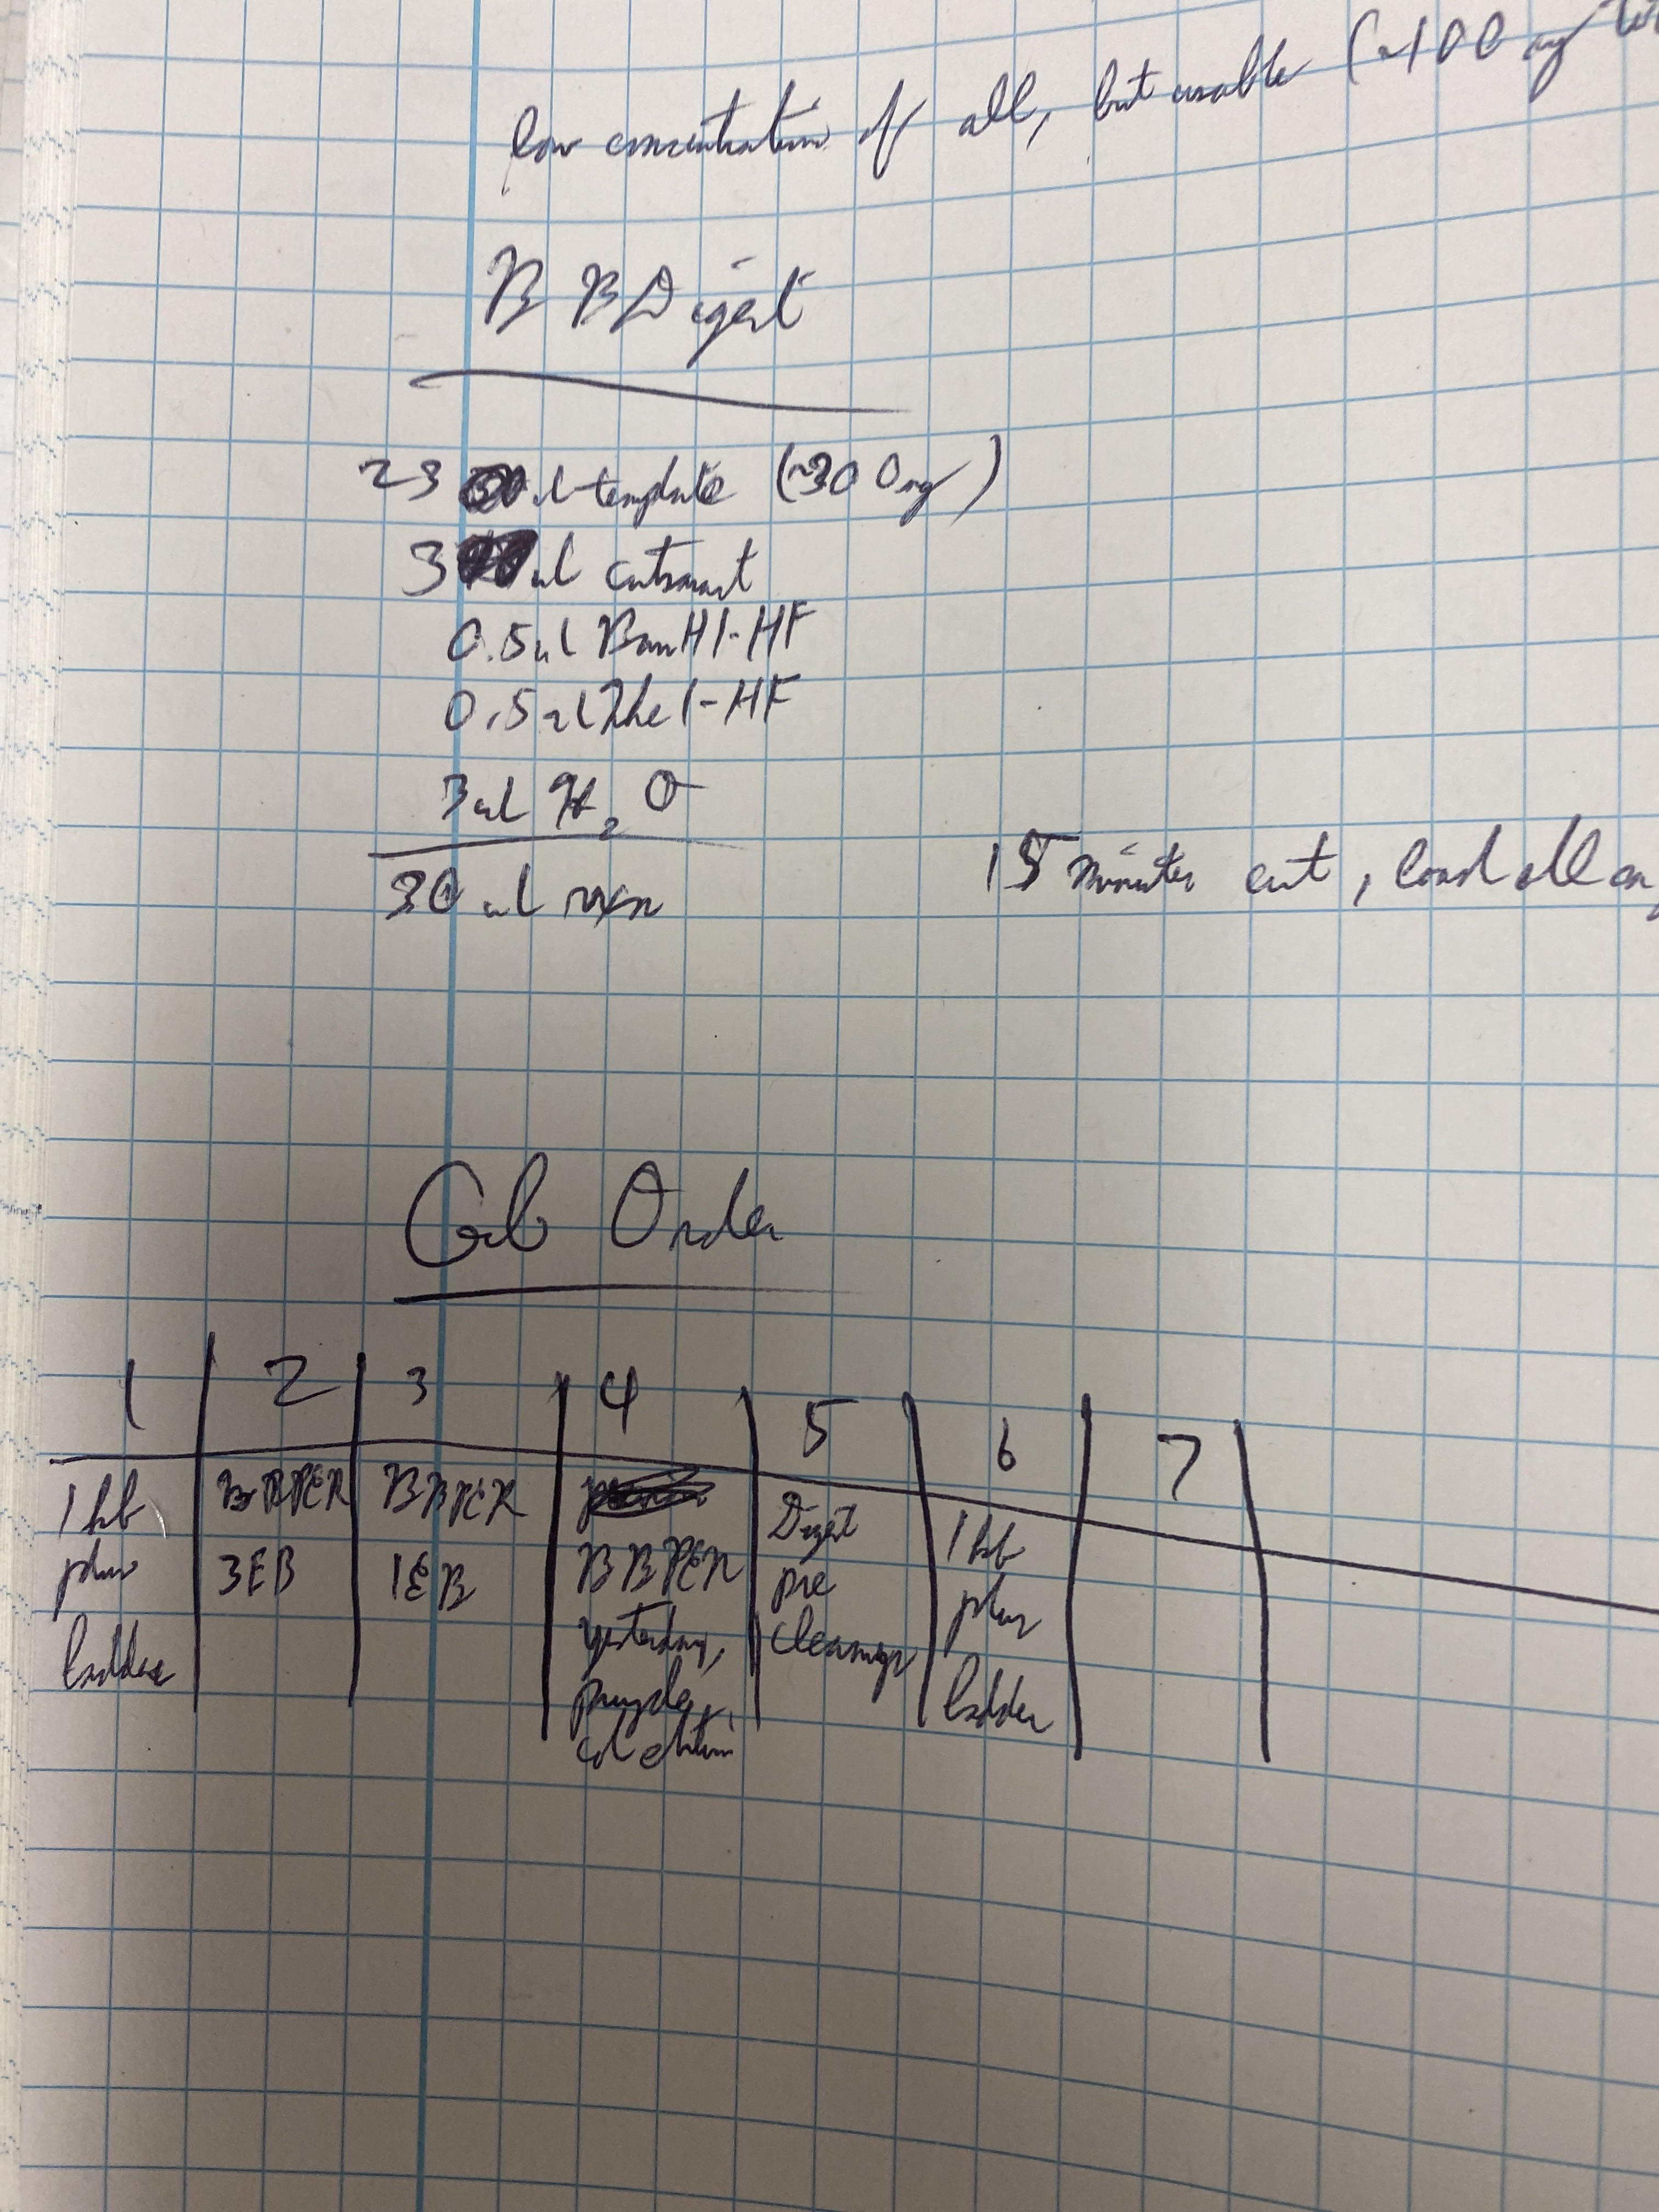 low concentration of all, but usable (~100 ng
BB Digest
23 ul template (~300ng)
3 ul cutsmart
0.5ul BamHI-HF
0.5ul NheI-HF
3ul H2O
30 ul rxn
15 minutes cut, load all on
Gel Order
1 2 3 4 5 6 7
1kb plus ladder
BBPCR 3EB
BBPCR 1EB
BBPCR yesterday, elution
Digest pre cleanup
1kb plus ladder